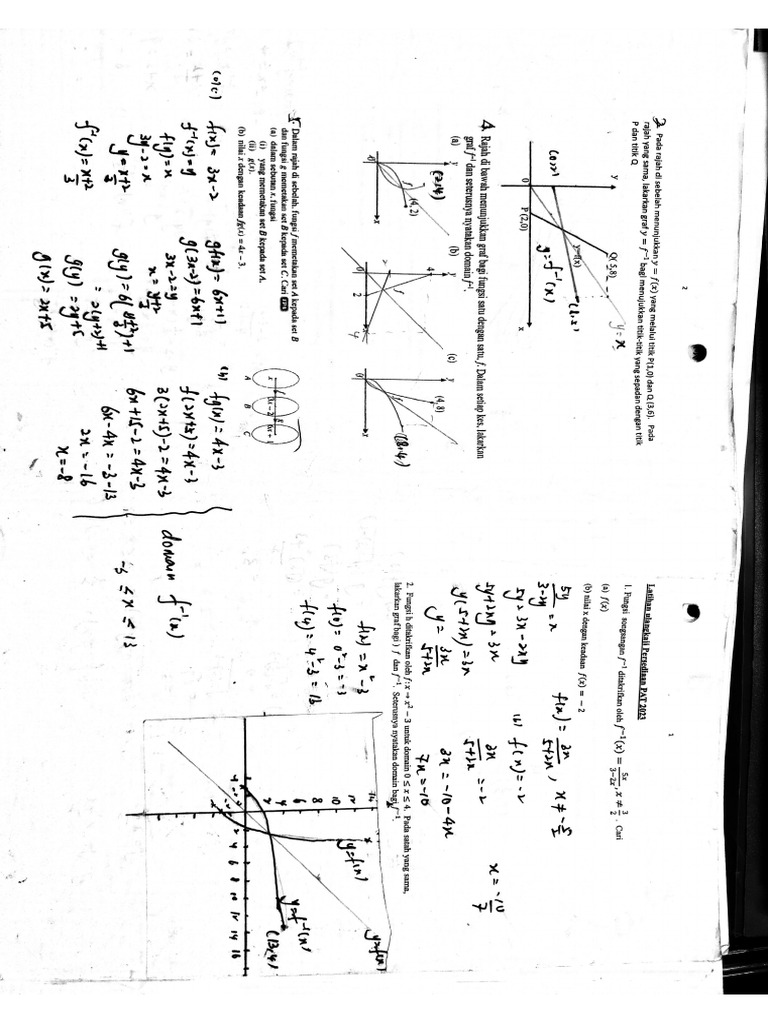 1
Latihan ulangkaji Persediaan PAT 2023
1. Fungsi songsangan f⁻¹ ditakrifkan oleh f⁻¹(x) = 5x/(3−2x), x ≠ 3/2. Cari
(a) f(x)
(b) nilai x dengan keadaan f(x) = −2
5y/(3-2y) = x
5y = 3x - 2xy
5y + 2xy = 3x
y(5+2x) = 3x
y = 3x/(5+2x)
f(x) = 3x/(5+2x), x ≠ -5/2
(b) f(x) = -2
3x/(5+2x) = -2
3x = -10 - 4x
7x = -10
x = -10/7
2. Fungsi h ditakrifkan oleh f: x → x² − 3 untuk domain 0 ≤ x ≤ 4. Pada satah yang sama,
lakarkan graf bagi ) f dan f⁻¹. Seterusnya nyatakan domain bagi f⁻¹.
f(x) = x² - 3
f(0) = 0² - 3 = -3
f(4) = 4² - 3 = 13
y = f(x)
y = f⁻¹(x)
(13,4)
2 4 6 8 10 12 14 16
domain f⁻¹(x)
-3 ≤ x ≤ 13
2
3. Pada rajah di sebelah menunjukkan y = f(x) yang melalui titik P(1,0) dan Q (3,6). Pada
rajah yang sama, lakarkan graf y = f⁻¹ bagi menunjukkan titik-titik yang sepadan dengan titik
P dan titik Q
y
Q( 5,8)
y=f(x)
y = x
(0,2)
(8,5)
y = f⁻¹(x)
0
P (2,0)
x
4. Rajah di bawah menunjukkan graf bagi fungsi satu dengan satu, f. Dalam setiap kes, lakarkan
graf f⁻¹ dan seterusnya nyatakan domain f⁻¹.
(a) y
(2,4)
(4, 2)
f
0
x
(b) y
4
2
f
0
2
4
x
(c) y
(4, 8)
(8,4)
0
x
5. Dalam rajah di sebelah, fungsi f memetakan set A kepada set B
dan fungsi g memetakan set B kepada set C. Cari
(a) dalam sebutan x, fungsi
(i) yang memetakan set B kepada set A.
(ii) g(x).
(b) nilai x dengan keadaan fg(x) = 4x − 3.
x
3x − 2
6x + 1
A
B
C
f(x) = 3x - 2
f⁻¹(x) = y
f(y) = x
3y - 2 = x
y = (x+2)/3
f⁻¹(x) = (x+2)/3
gf(x) = 6x + 1
g(3x-2) = 6x+1
3x - 2 = y
x = (y+2)/3
g(y) = 6((y+2)/3) + 1
= 2(y+2)+1
g(y) = 2y + 5
g(x) = 2x+5
(b) fg(x) = 4x - 3
f(2x+5) = 4x - 3
3(2x+5) - 2 = 4x - 3
6x + 15 - 2 = 4x - 3
6x - 4x = -3 - 13
2x = -16
x = -8